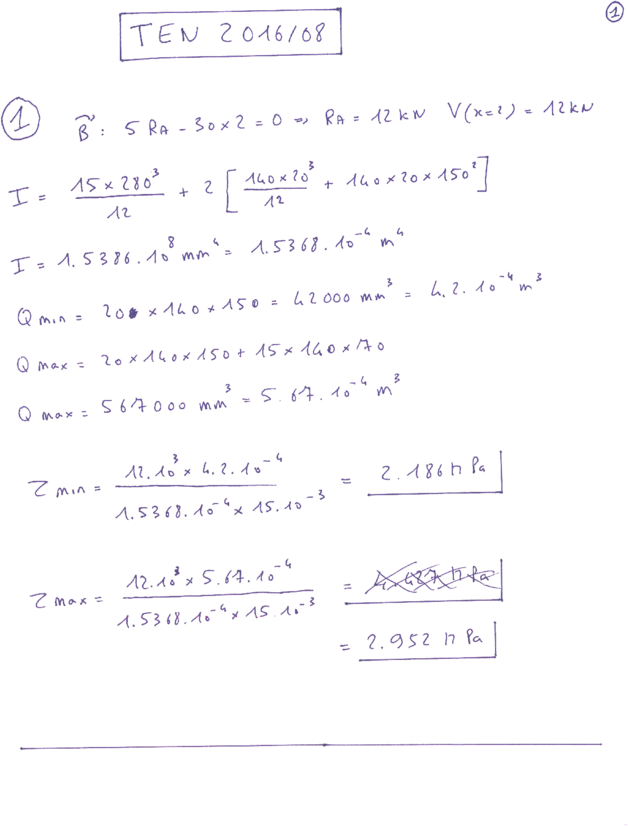 1
TEN 2016/08
1 B̃: 5 RA - 30 x 2 = 0 => RA = 12 kN V(x=2) = 12 kN
I = 15 x 280³ / 12 + 2 [ 140 x 20³ / 12 + 140 x 20 x 150² ]
I = 1.5386.10⁸ mm⁴ = 1.5368.10⁻⁴ m⁴
Q min = 20 x 140 x 150 = 42000 mm³ = 4.2.10⁻⁴ m³
Q max = 20 x 140 x 150 + 15 x 140 x 70
Q max = 567000 mm³ = 5.67.10⁻⁴ m³
τ min = 12.10³ x 4.2.10⁻⁴ / 1.5368.10⁻⁴ x 15.10⁻³ = 2.186 MPa
τ max = 12.10³ x 5.67.10⁻⁴ / 1.5368.10⁻⁴ x 15.10⁻³ = 4.427 MPa
= 2.952 MPa